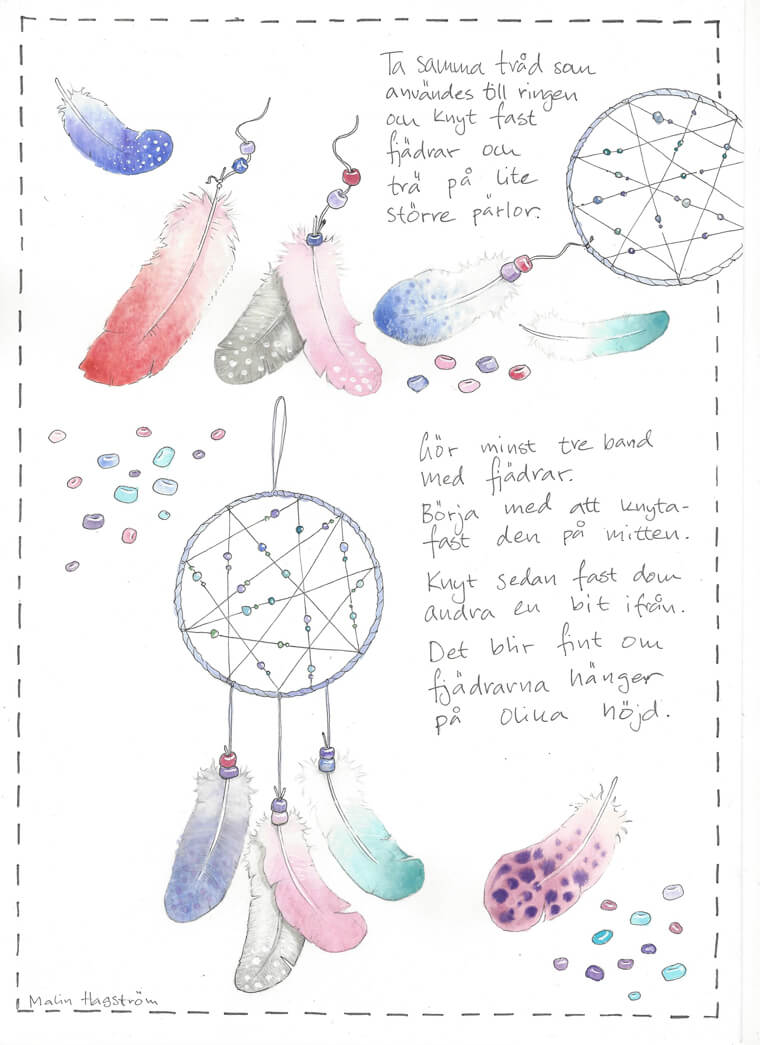 Ta samma tråd som
användes till ringen
och knyt fast
fjädrar och
trä på lite
större pärlor.
Gör minst tre band
med fjädrar.
Börja med att knyta-
fast den på mitten.
Knyt sedan fast dom
andra en bit ifrån.
Det blir fint om
fjädrarna hänger
på olika höjd.
Malin Hagström